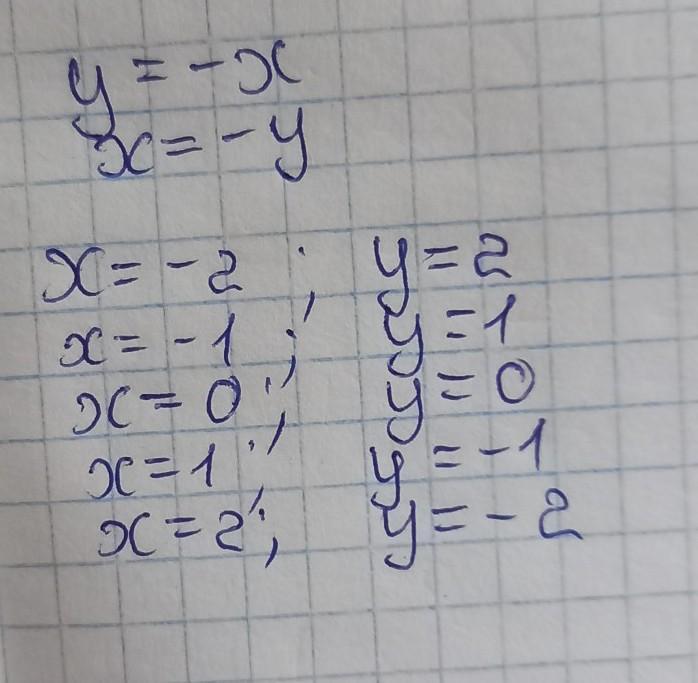 y = -x
x = -y
x = -2 ; y = 2
x = -1 ; y = 1
x = 0 ; y = 0
x = 1 ; y = -1
x = 2 ; y = -2